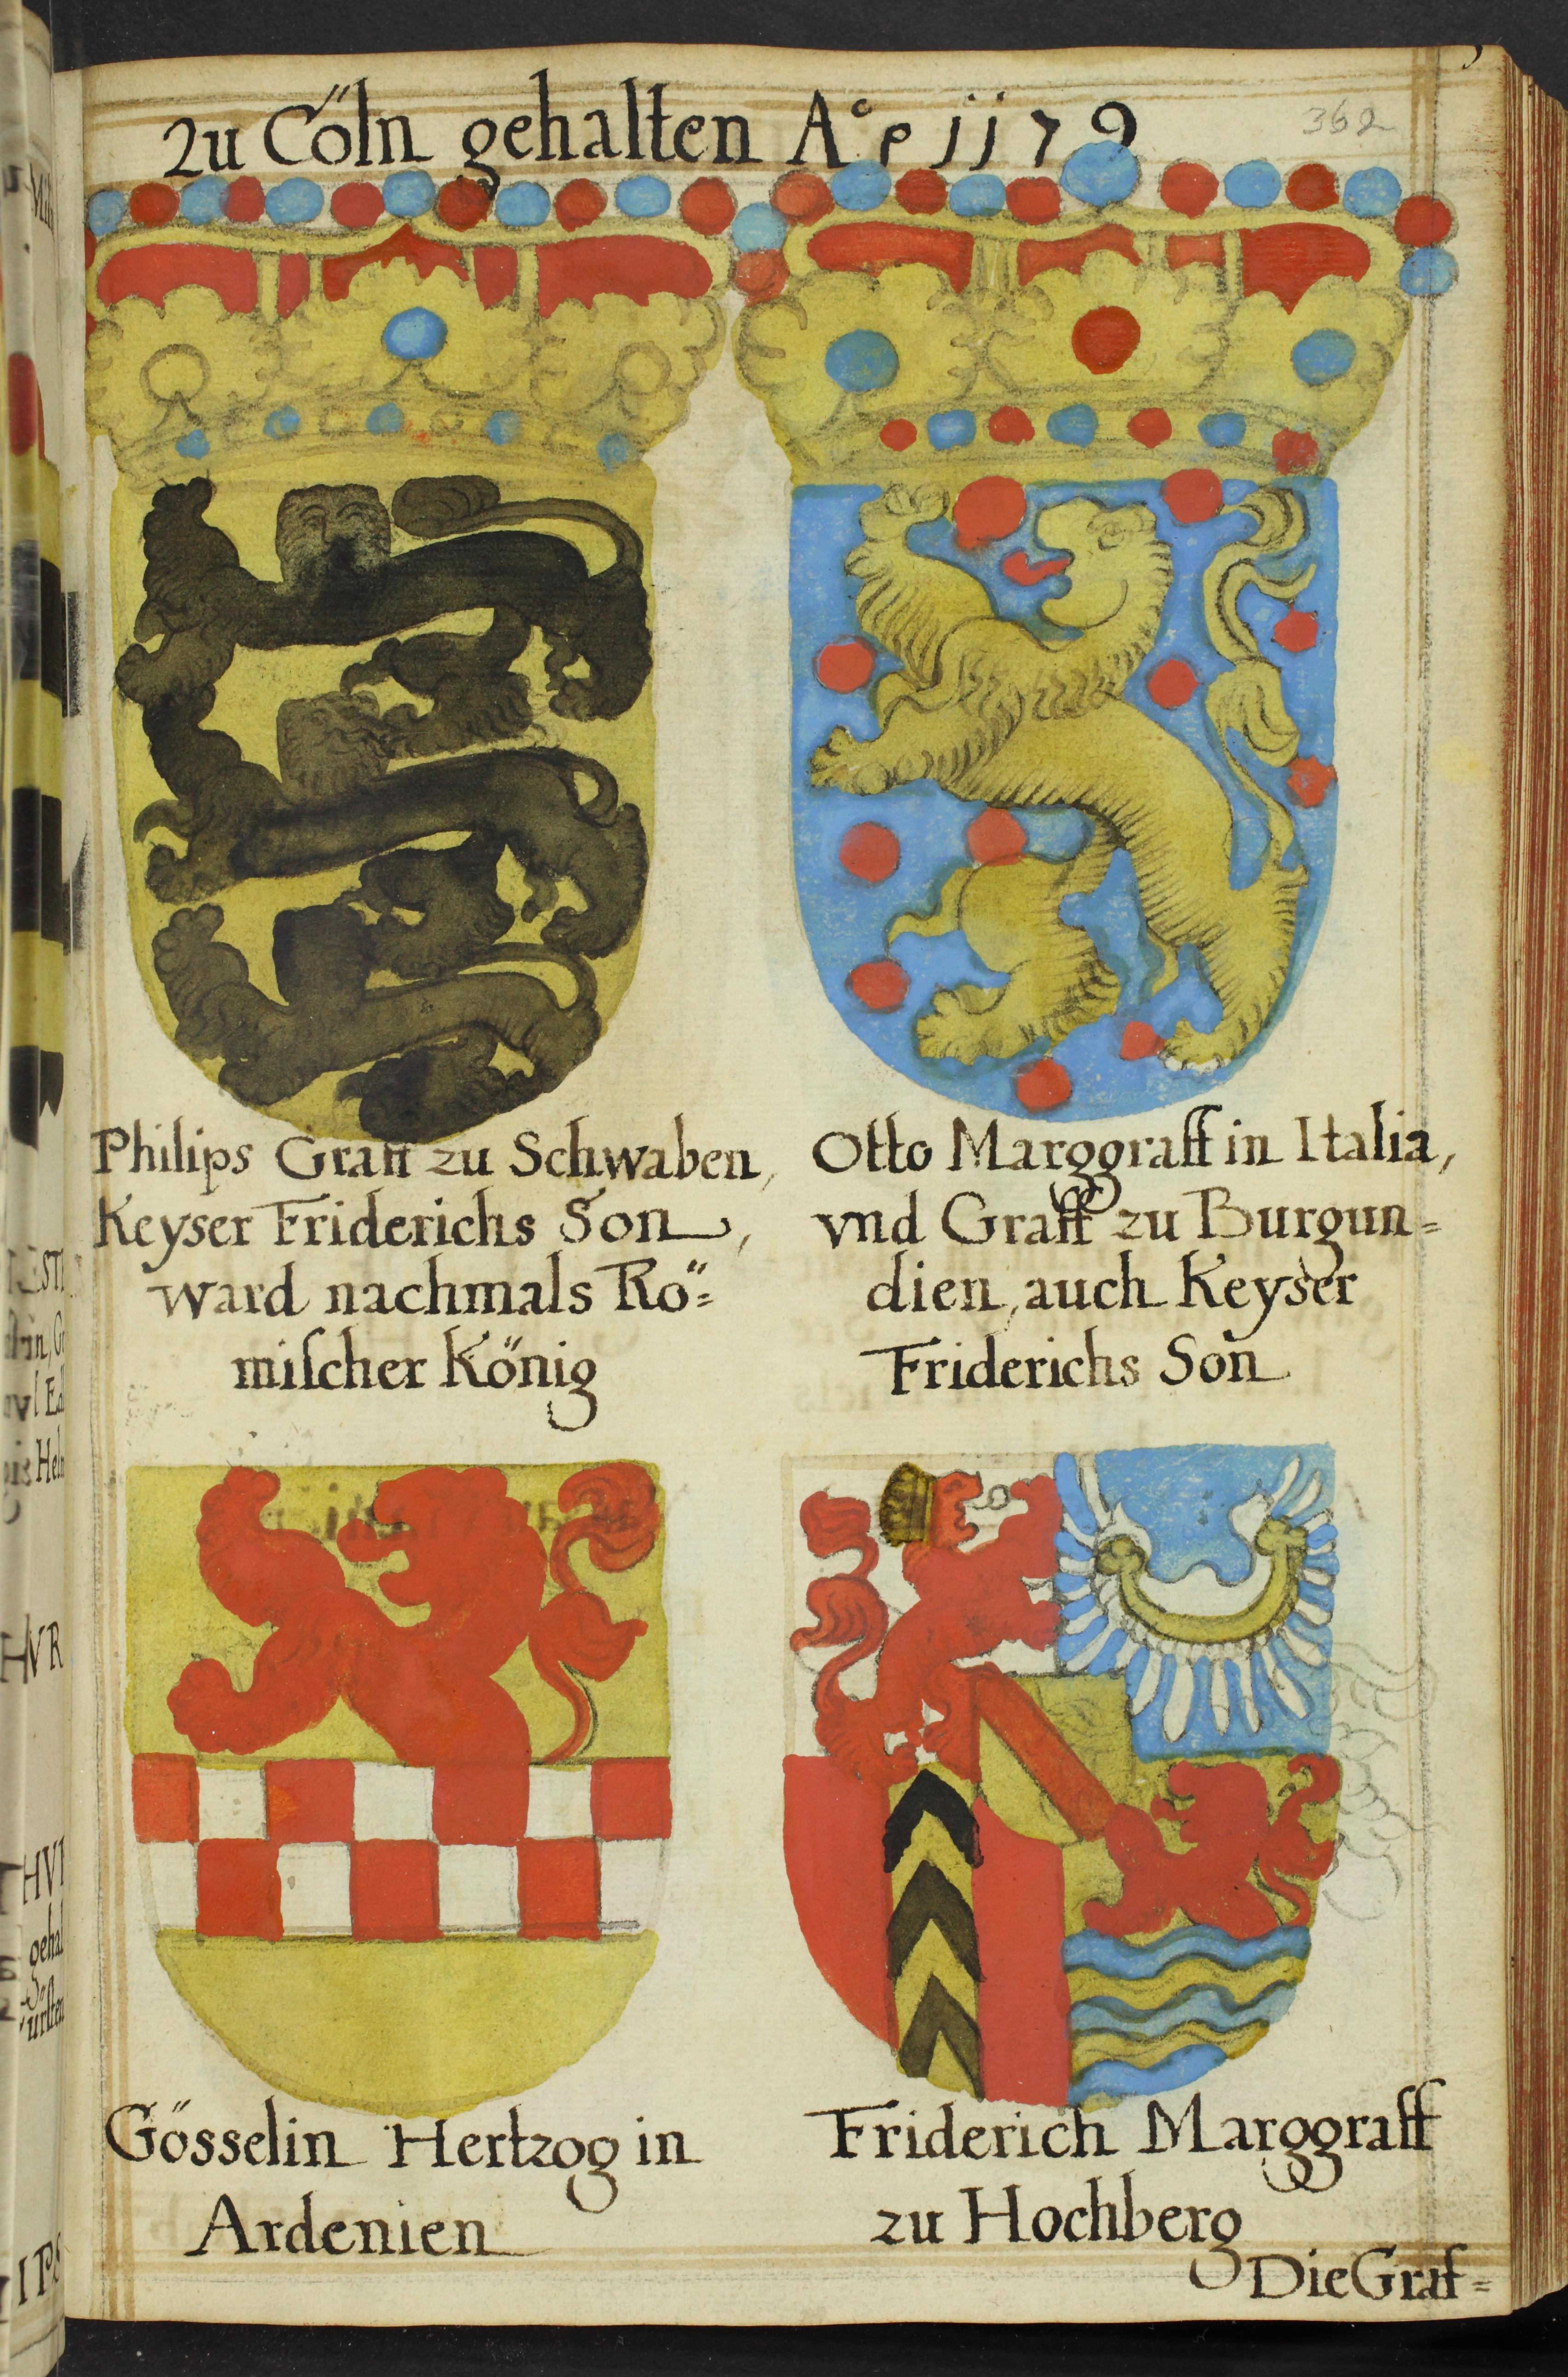 Zu Cöln gehalten A° e 1179
362
Philips Graff zu Schwaben,
Keyser Friderichs Son,
ward nachmals Rö=
miſcher König
Otto Marggraff in Italia,
vnd Graff zu Burgun=
dien, auch Keyser
Friderichs Son
Gösselin Hertzog in
Ardenien
Friderich Marggraff
zu Hochberg
Die Graf=